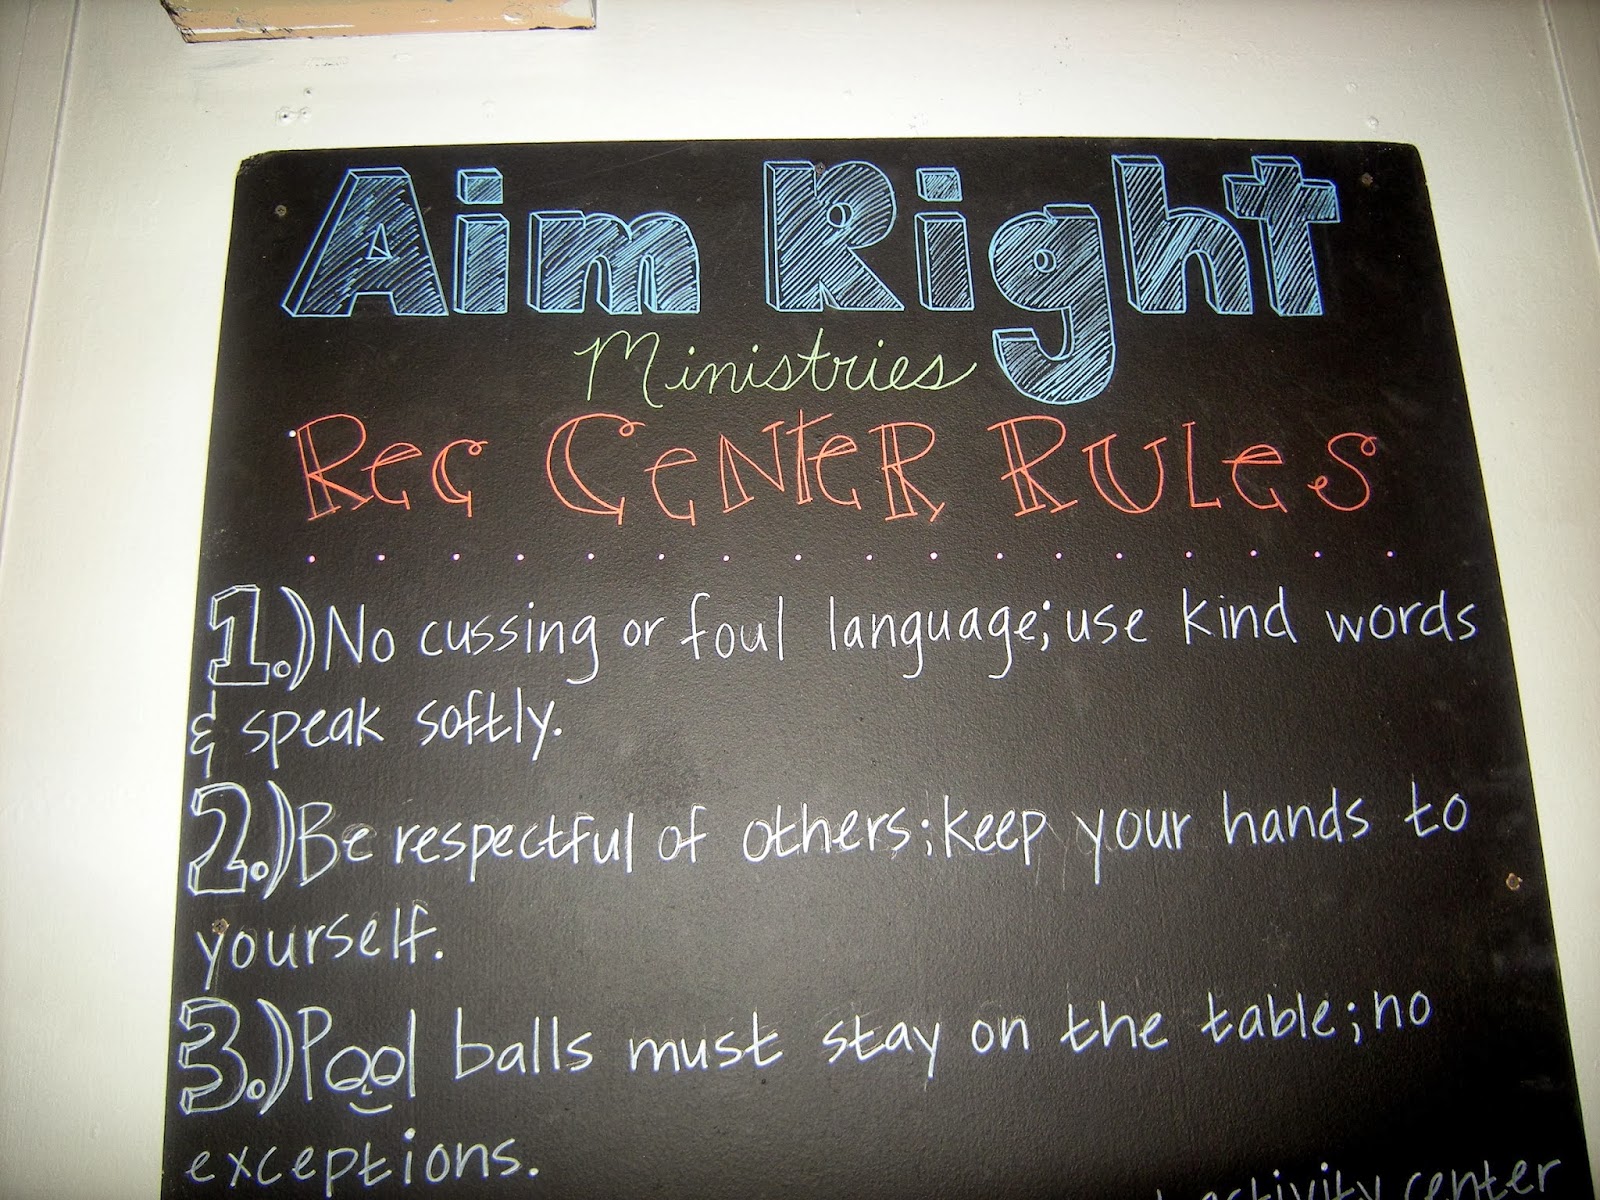 Aim Right
Ministries
Rec Center Rules
1.) No cussing or foul language; use kind words
& speak softly.
2.) Be respectful of others; keep your hands to
yourself.
3.) Pool balls must stay on the table; no
exceptions.
activity center